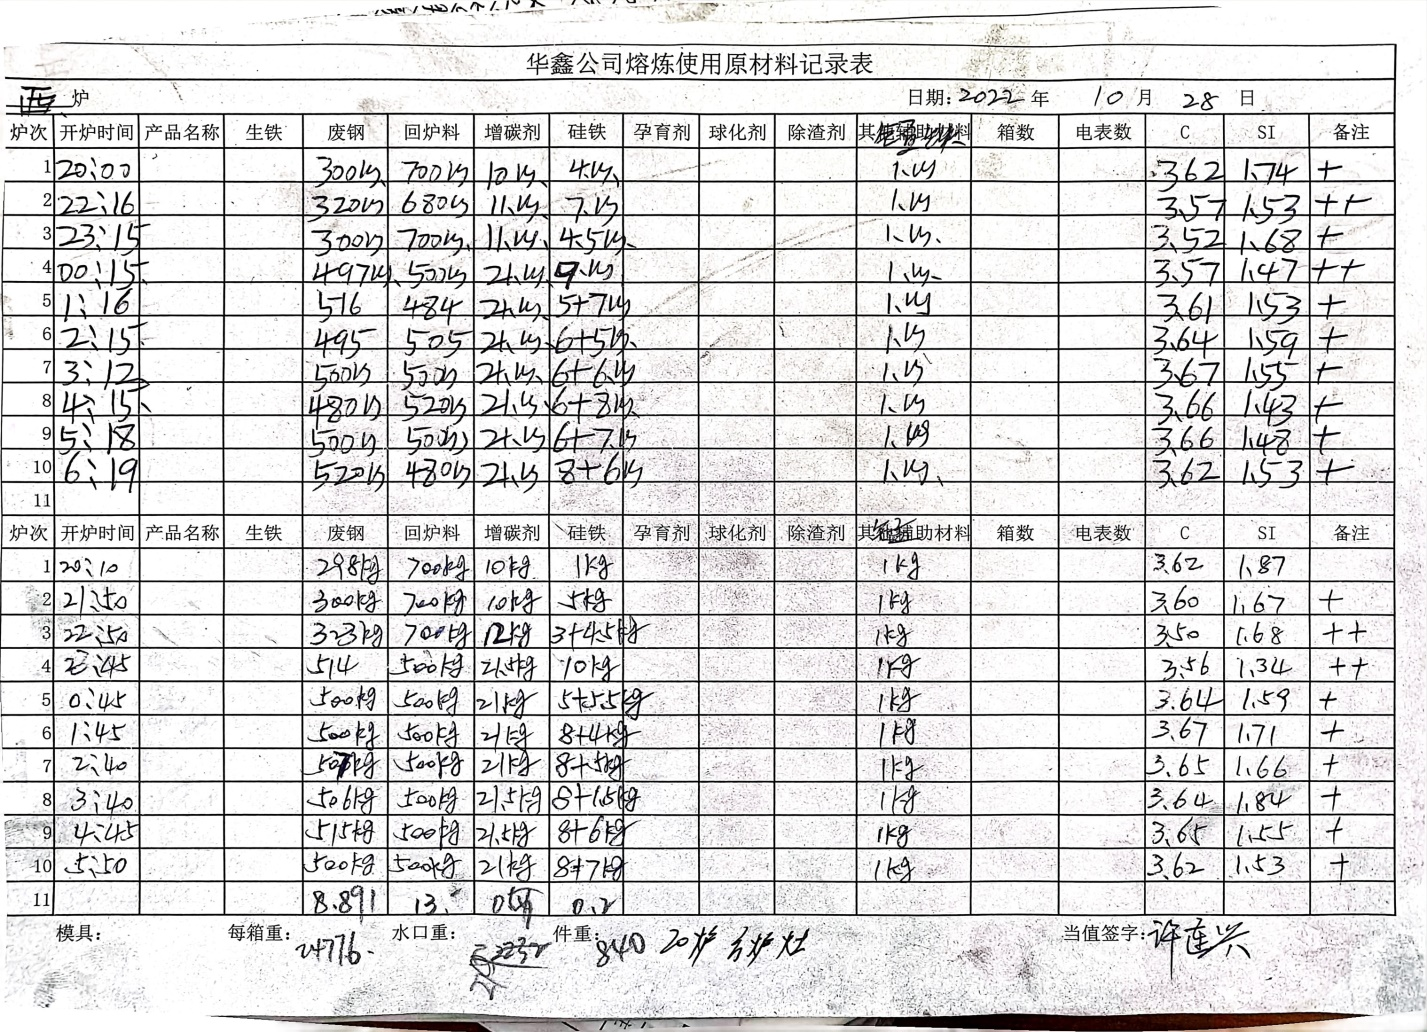 华鑫公司熔炼使用原材料记录表
西 炉 日期: 2022 年 10 月 28 日
炉次 开炉时间 产品名称 生铁 废钢 回炉料 增碳剂 硅铁 孕育剂 球化剂 除渣剂 箱数 电表数 C SI 备注
1 20:00 300kg 700kg 10kg 4kg 1kg 3.62 1.74 +
2 22:16 320kg 680kg 11kg 7kg 1kg 3.57 1.53 ++
3 23:15 300kg 700kg 11kg 4.5kg 1kg 3.52 1.68 +
4 00:15 497kg 500kg 21kg 9kg 1kg 3.57 1.47 ++
5 1:16 516 484 21kg 5+7kg 1kg 3.61 1.53 +
6 2:15 495 505 21kg 6+5kg 1kg 3.64 1.59 +
7 3:12 500kg 500kg 21kg 6+6kg 1kg 3.67 1.55 +
8 4:15 480kg 520kg 21kg 6+8kg 1kg 3.66 1.43 +
9 5:18 500kg 500kg 21kg 6+7kg 1kg 3.66 1.48 +
10 6:19 520kg 480kg 21kg 8+6kg 1kg 3.62 1.53 +
11
炉次 开炉时间 产品名称 生铁 废钢 回炉料 增碳剂 硅铁 孕育剂 球化剂 除渣剂 其他辅助材料 箱数 电表数 C SI 备注
1 20:10 298kg 700kg 10kg 1kg 1kg 3.62 1.87
2 21:50 300kg 700kg 10kg 5kg 1kg 3.60 1.67 +
3 22:50 323kg 700kg 12kg 3+4.5kg 1kg 3.50 1.68 ++
4 23:45 514 500kg 21.5kg 10kg 1kg 3.56 1.34 ++
5 0:45 500kg 500kg 21kg 5+5.5kg 1kg 3.64 1.59 +
6 1:45 500kg 500kg 21kg 8+4kg 1kg 3.67 1.71 +
7 2:40 507kg 500kg 21kg 8+5kg 1kg 3.65 1.66 +
8 3:40 506kg 500kg 21.5kg 8+1.5kg 1kg 3.64 1.84 +
9 4:45 515kg 500kg 21.5kg 8+6kg 1kg 3.65 1.55 +
10 5:50 500kg 500kg 21kg 8+7kg 1kg 3.62 1.53 +
11 8.891 13. 0.2
模具: 每箱重: 24776. 水口重: 件重: 840 20炉 当值签字: 许连兴